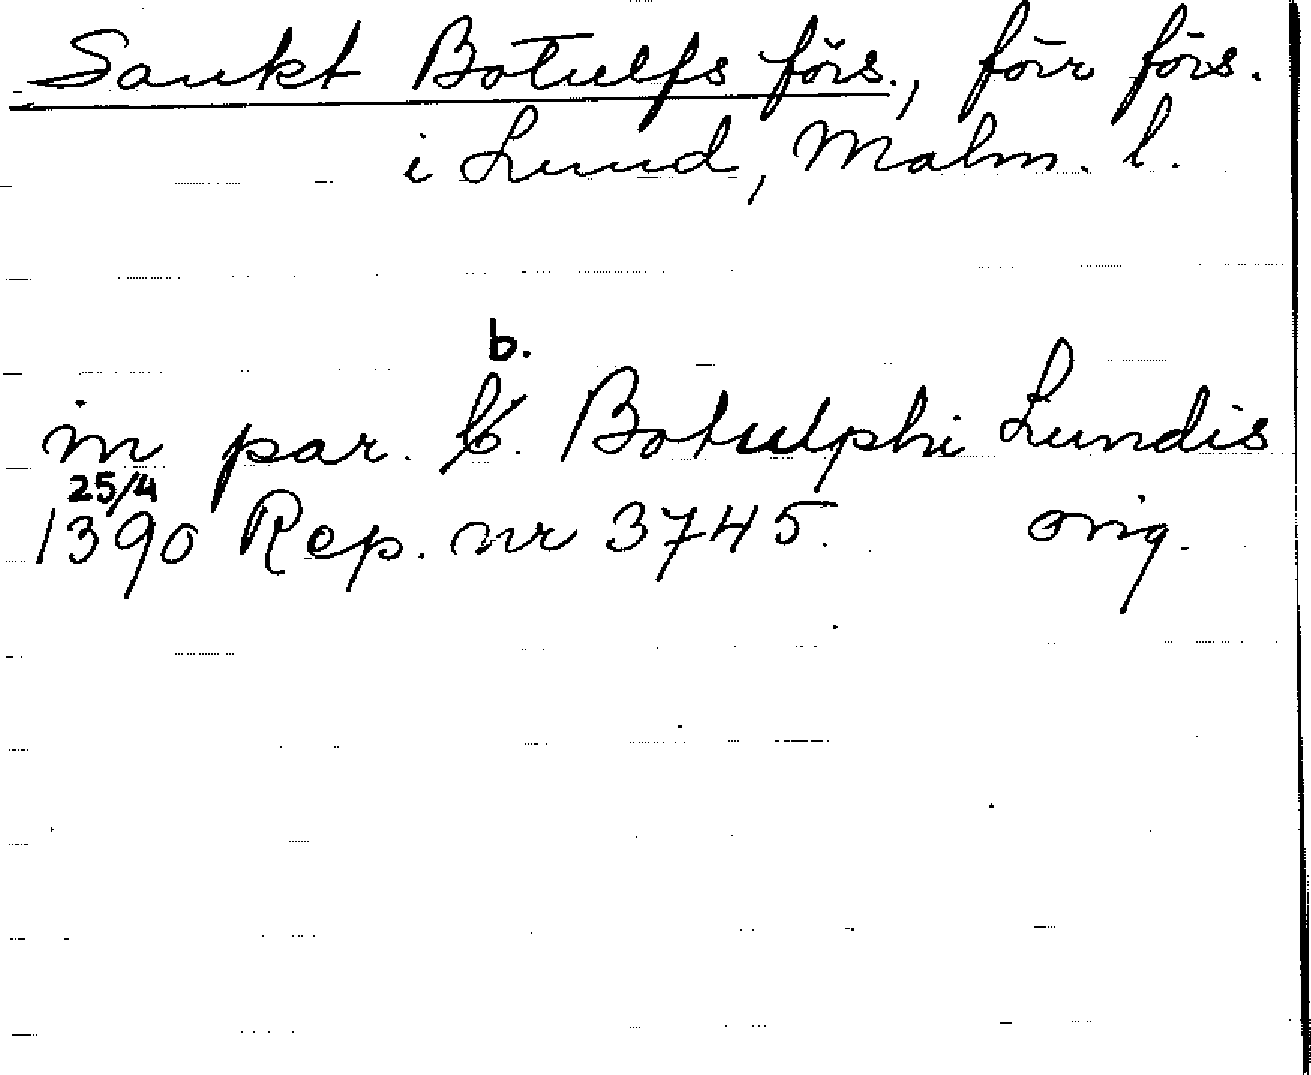 Sankt Botulfs förs., förr förs.
i Lund, Malm. l.
b.
in par. Botulphi Lundis
25/4
1390 Rep. nr 3745. orig.